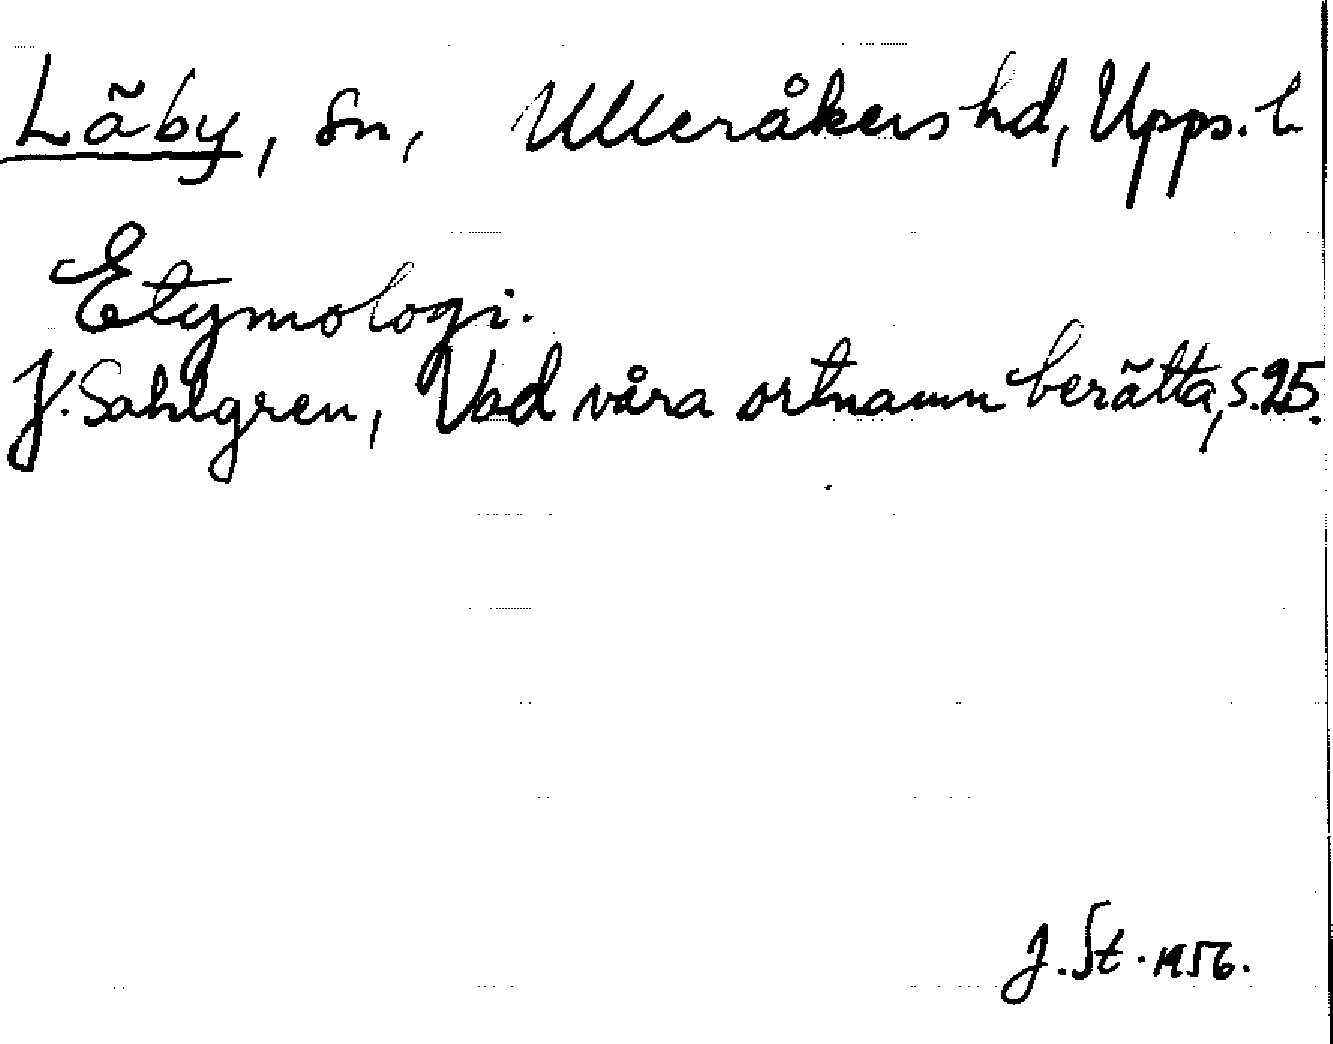 Läby, Sn, Ulleråkers hd, Upps. l.
Etymologi.
J. Sahlgren, Vad våra ortnamn berätta, s. 25.
J. St. 1956.